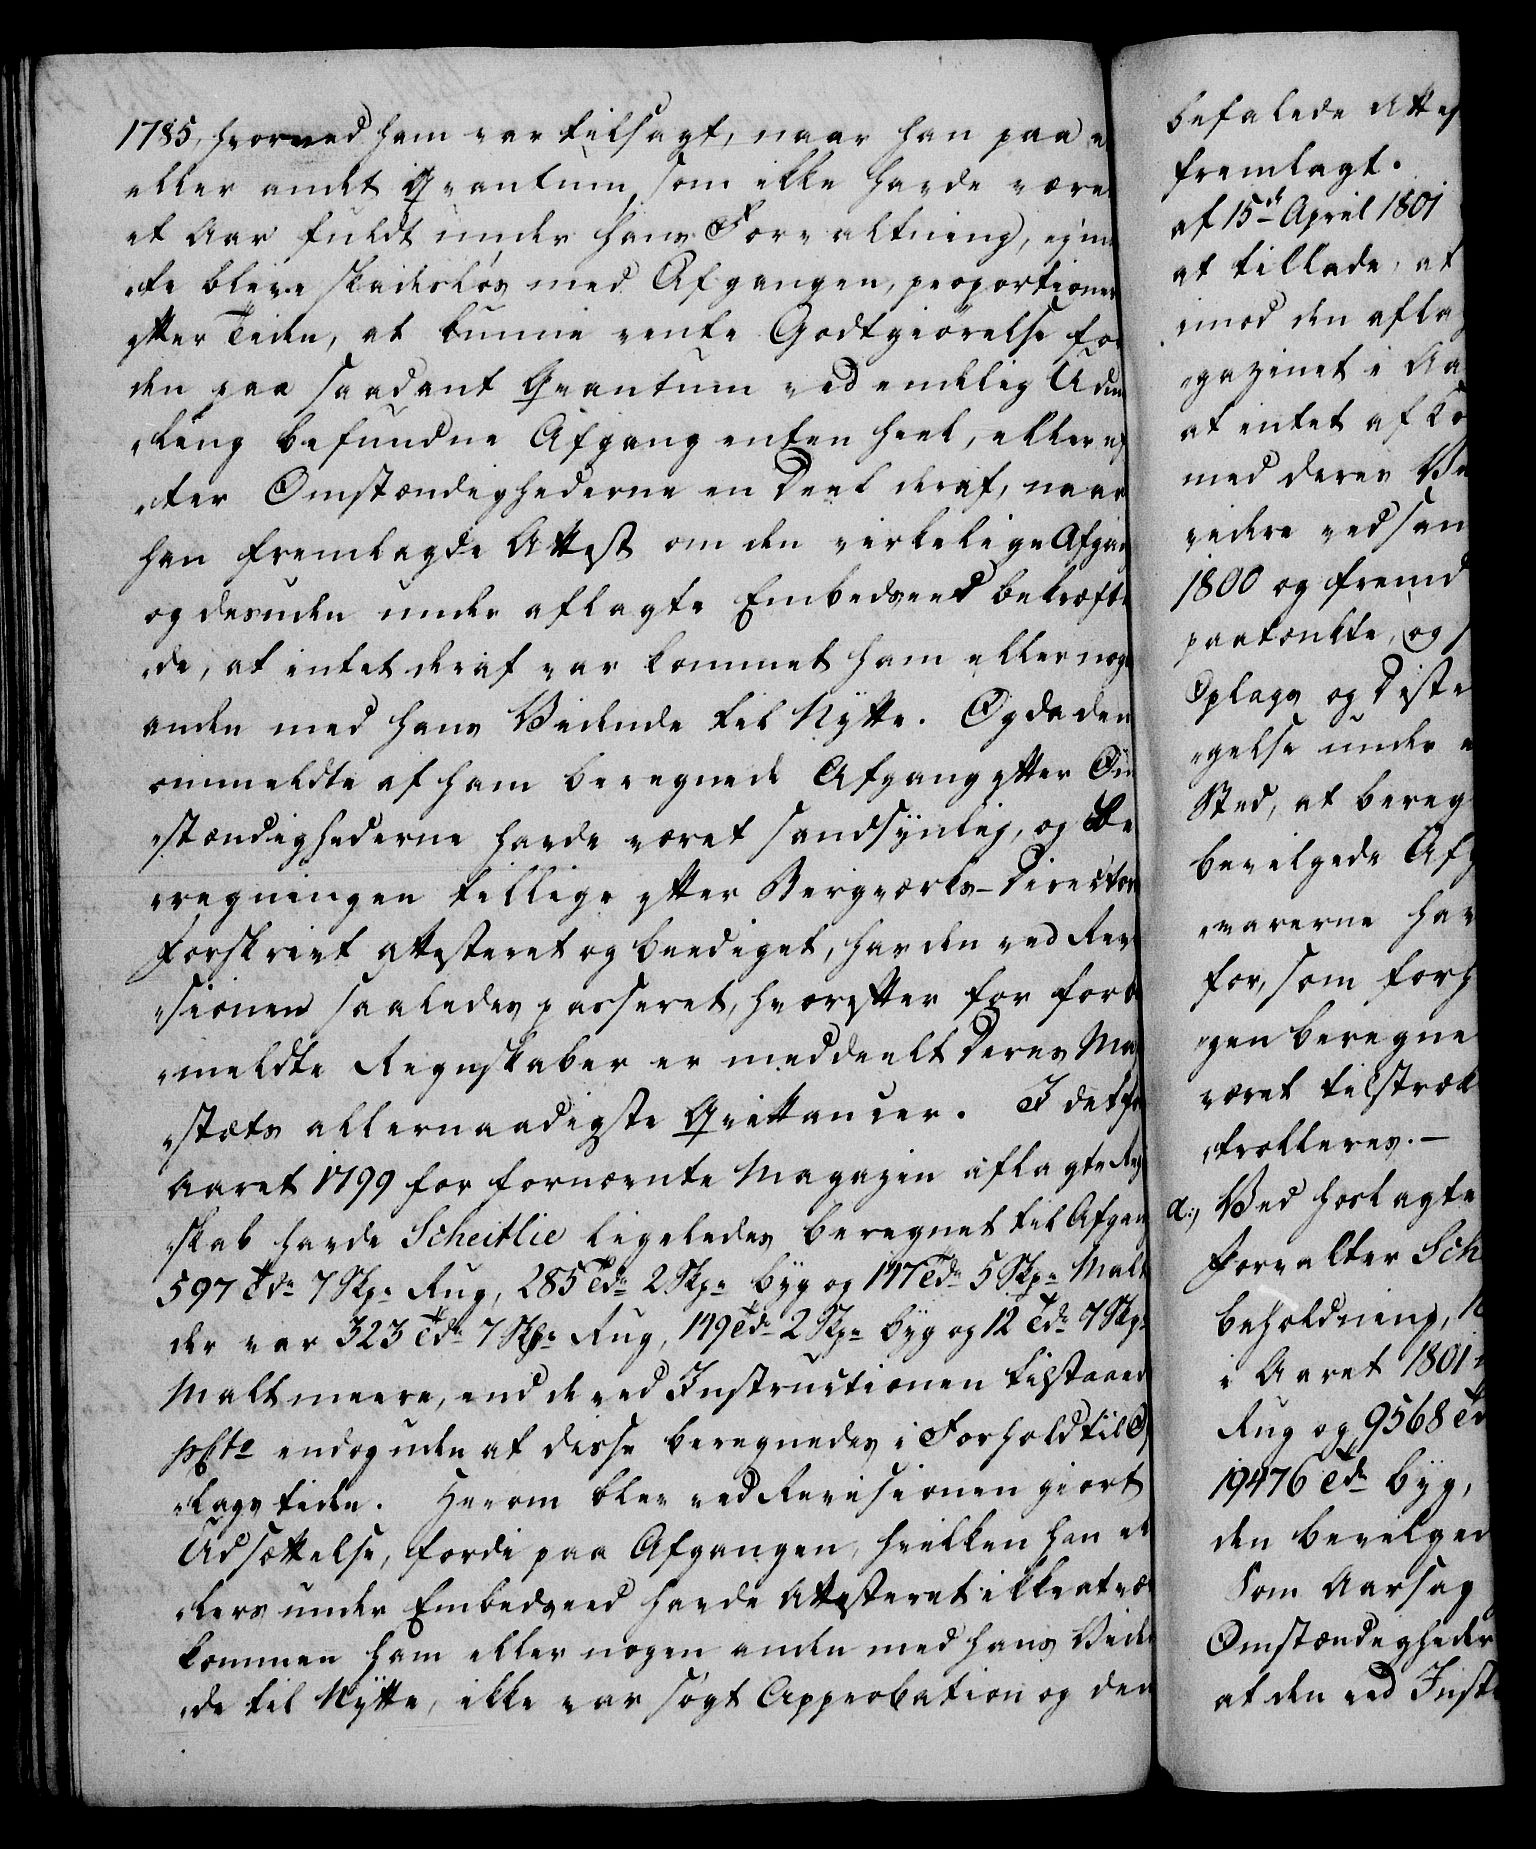 1785, hvorved ham var tilsagt, naar han paa e
eller andet Qvantum, som ikke havde være
et Aar fuldt under hans Forvaltning, ej
„te blive skadesløs med Afgangen, proportioner
efter Tiden, at kunne vente Godtgiørelse fo
den paa saadant Qvantum ved endelig Ud
„ling befundne Afgang enten heel, eller ef
„ter Omstændighederne en Deel deraf, naar
han fremlagde Attest om den virkelige Afgan
og desuden under aflagte Embedseed bekræfte
„de, at intet deraf var kommet ham eller nog
anden med hans Vidende til Nytte. Og da den
ommeldte af ham beregnede Afgang efter Om
„stændighederne havde været sandsynlig, og Be
„regningen tillige efter Bergværks-Director
Forskrivt attesteret og beediget, har den ved Revi
„sionen saaledes passeret, hvorefter for forbe
„meldte Regnskaber er meddeelt Deres Maj
„stæts allernaadigste Qvittancer. I det for
Aaret 1799 for fornævnte Magazin aflagte Reg
„skab havde Scheitlie ligeledes beregnet til Afgan
597 Tdr 7 Skpr Rug, 285 Tdr 2 Skpr byg og 147 Tdr 5 Skpr Malt
der var 323 Tdr 7 Skpr Rug, 149 Tdr 2 Skpr byg og 12 Tdr 7 Skpr
Malt meere, end de ved Instructionen tilstaaed
pCto endog uden at disse beregnedes i Forhold til Op
„lagstiden. Herom blev ved Revisionen giort
Udsættelse, fordi paa Afgangen, hvilken han el
„lers under Embedseed havde Attesteret ikke at væ
kommen ham eller nogen anden med hans Viden
„de til Nytte, ikke var søgt Approbation og den
befalede Attes
fremlagt.
af 15de April 1801
at tillade, at
imod den afla
„gazinet i Aa
at intet af Ko
med deres Vi
videre ved sam
1800 og fremd
paatænkte, og
Oplags og Diste
„gelse under
Sted, at bereg
bevilgede Afg
„varerne hav
for, som forh
„gen beregne
været tilstræk
„trolleres.—
a:, Ved hoslagte
Forvalter Sch
beholdning,
i Aaret 1801
Rug og 9568 Td
19476 Tdr byg,
den bevilged
Som Aarsag
Omstændigheder
at den ved Inst